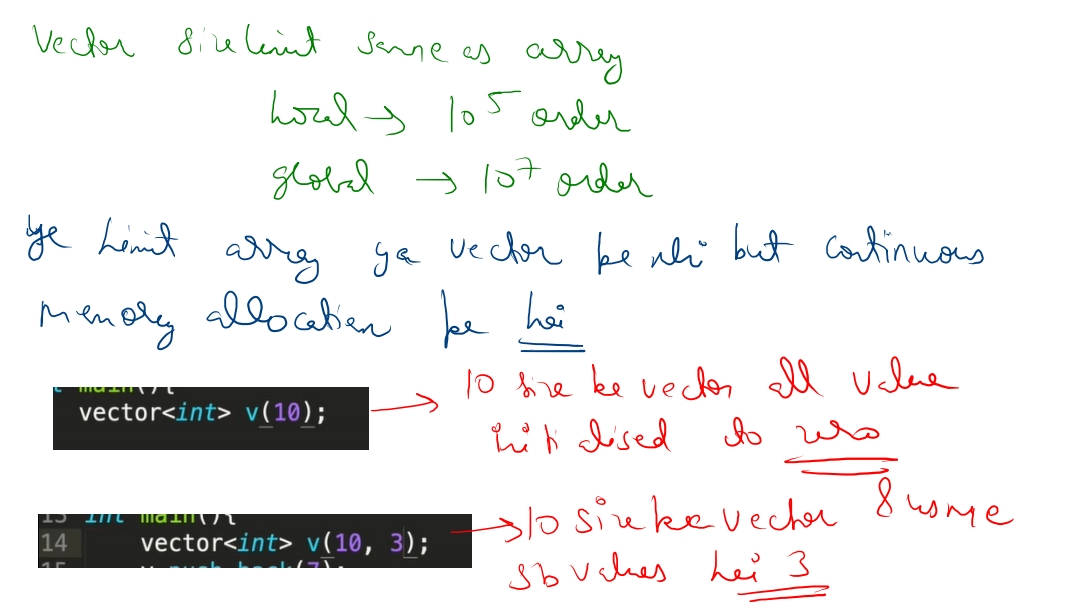 Vector size limit same as array
local → 10^5 order
global → 10^7 order
ye limit array ya vector pe nhi but continuous
memory allocation pe hai
main(){
vector<int> v(10);
→ 10 size ke vector all value
initialised to zero
13 int main(){
14 vector<int> v(10, 3);
15 v.push_back(7);
→ 10 size ka vector & usme
sb values hai 3